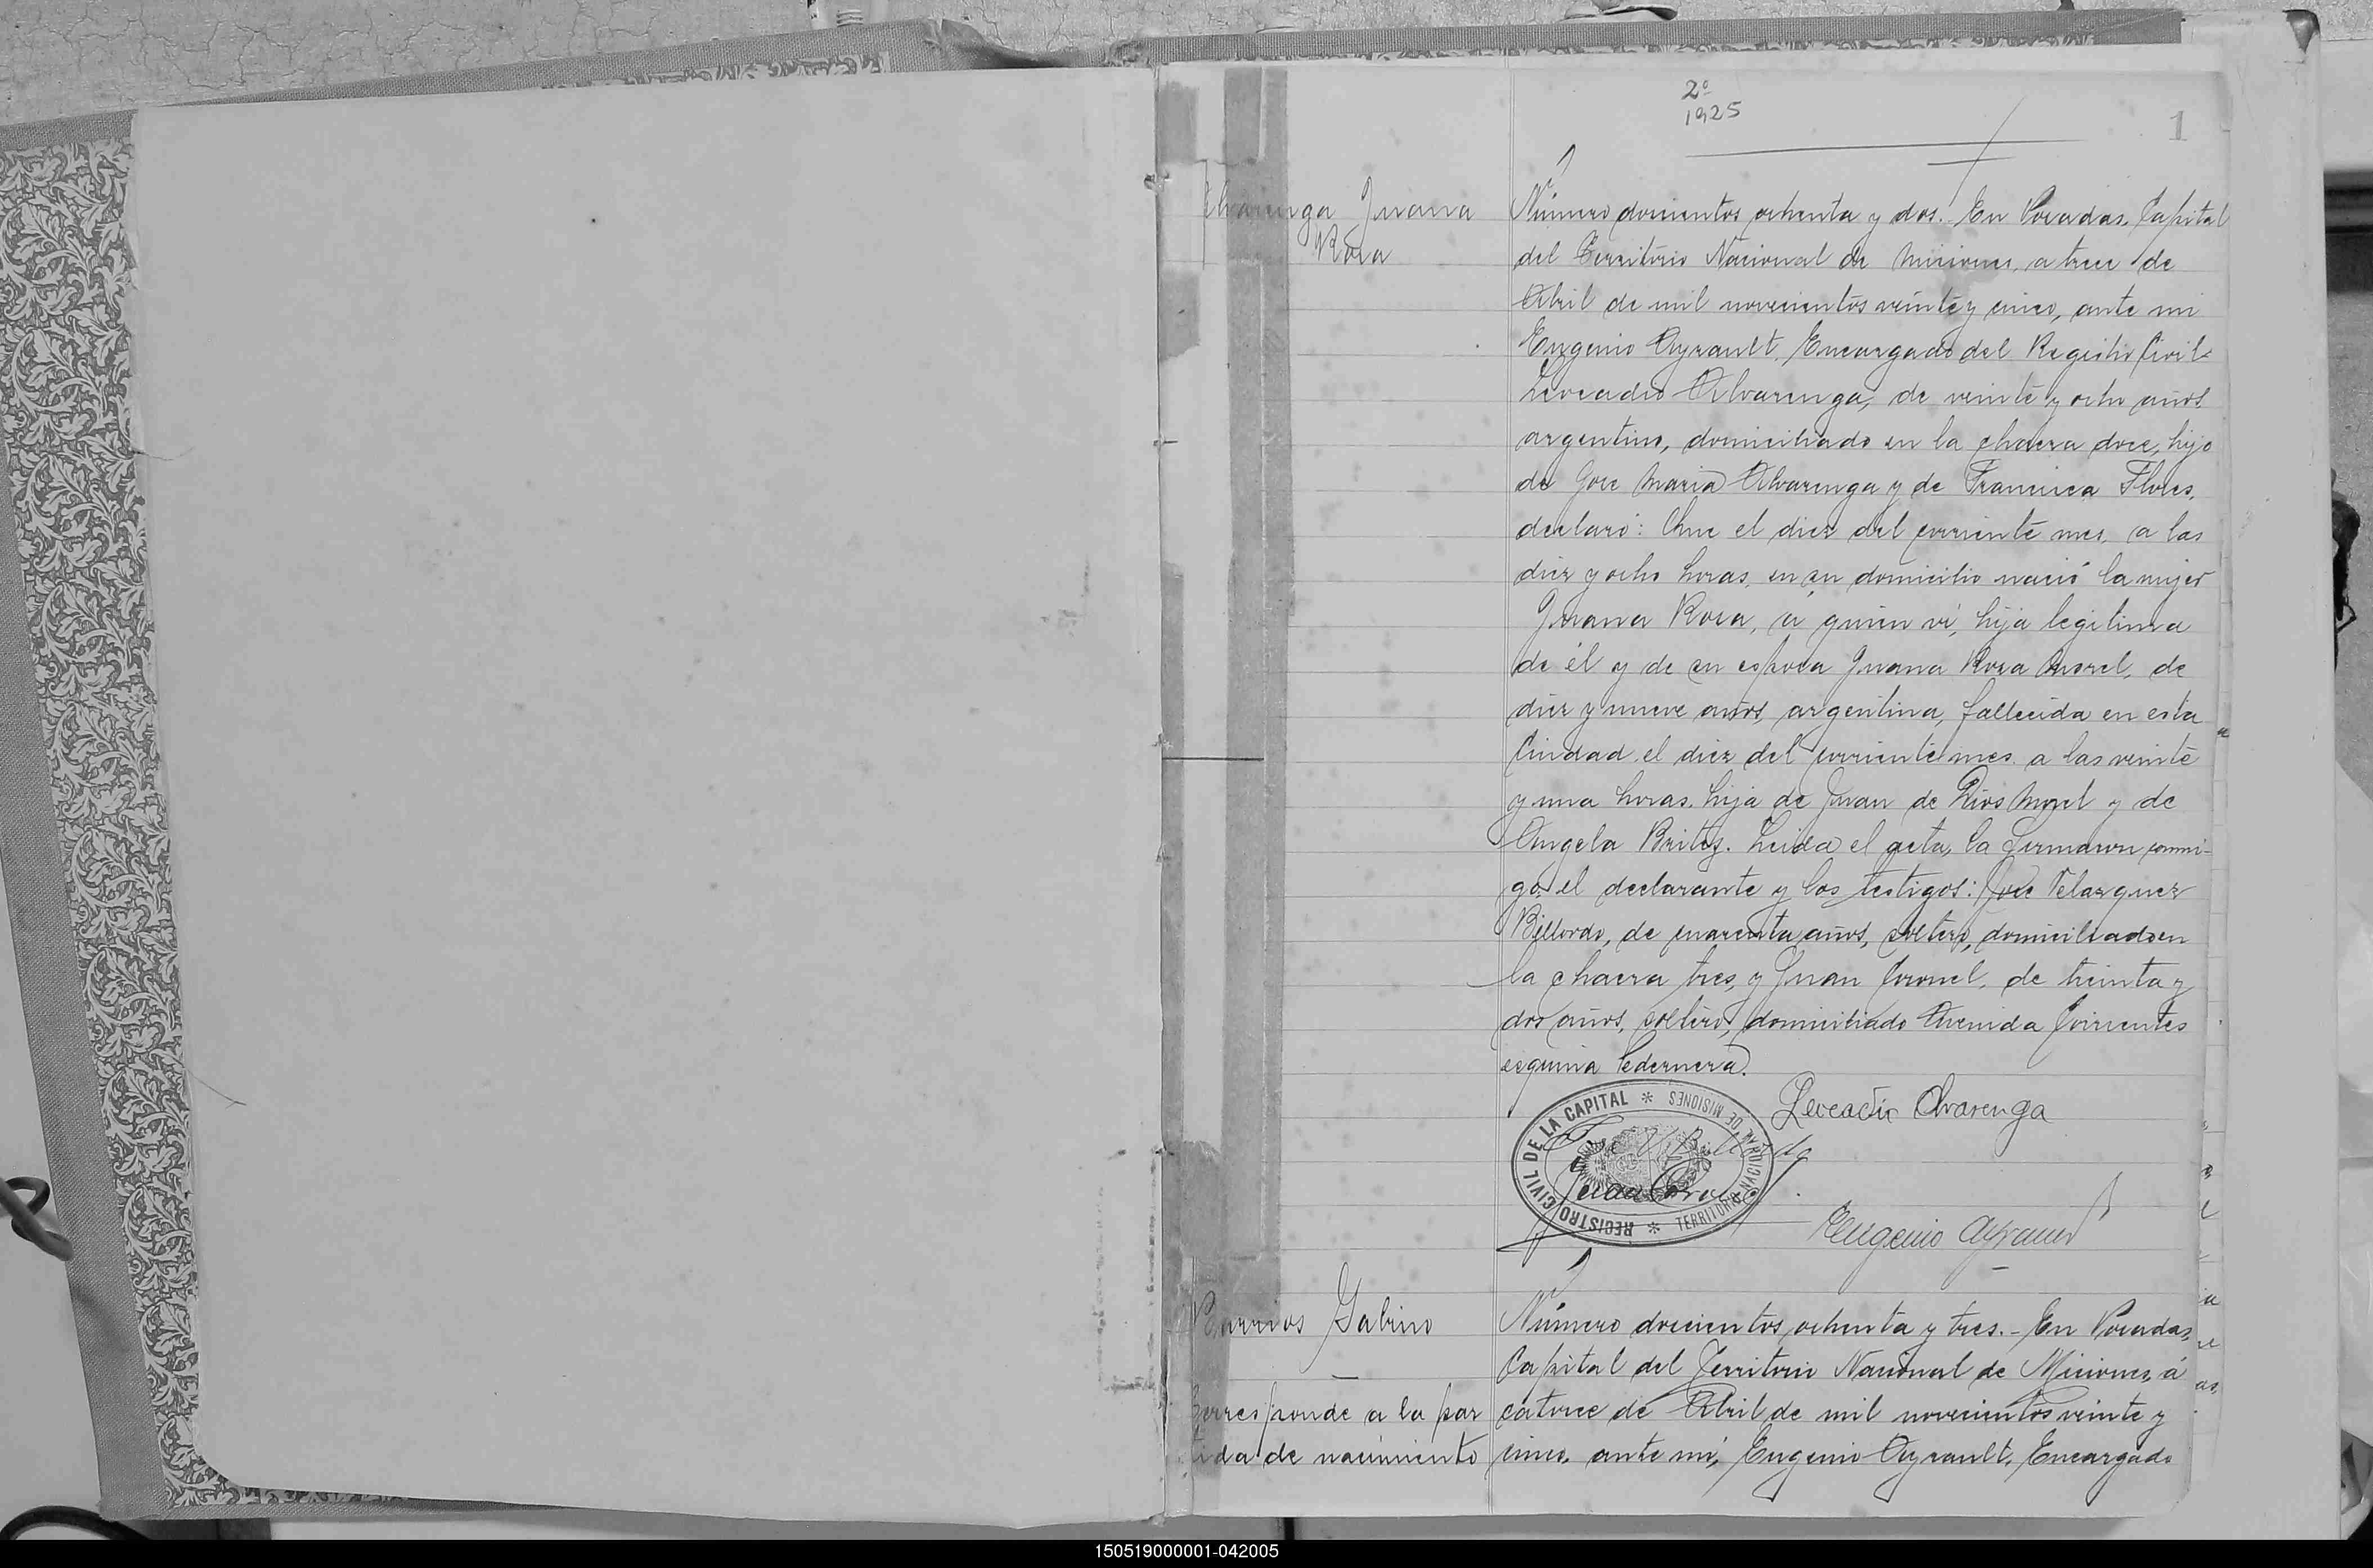 2º
1925
1
Alvarenga Juana
Rosa
Número doscientos ochenta y dos. En Posadas, Capital
del Territorio Nacional de Misiones, a trece de
Abril de mil novecientos veinte y cinco, ante mi
Eugenio Ayrault, Encargado del Registro Civil
Leocadio Alvarenga, de veinte y ocho años
argentino, domiciliado en la chacra doce, hijo
de Jose Maria Alvarenga y de Francisca Flores,
declaró: Que el diez del corriente mes, a las
diez y ocho horas, en su domicilio nació la mujer
Juana Rosa, á quien ví, hija legitima
de él y de su esposa Juana Rosa Morel, de
diez y nueve años, argentina, fallecida en esta
Ciudad el diez del corriente mes a las veinte
y una horas, hija de Juan de Dios Morel y de
Angela Britez. Leida el acta, la firmaron conmi-
go, el declarante y los testigos: Jose Velazquez
Billordo, de cuarenta años, soltero, domiciliado en
la chacra tres, y Juan Coronel, de treinta y
dos años, soltero, domiciliado Avenida Corrientes
esquina Pedernera.
Leocadio Alvarenga
REGISTRO CIVIL DE LA CAPITAL * TERRITORIO NACIONAL DE MISIONES *
Jose V. Billordo
Juan Coronel
Eugenio Ayrault
Barrios Gabino
Corresponde a la par
tida de nacimiento
Número doscientos ochenta y tres.- En Posadas,
Capital del Territorio Nacional de Misiones, á
catorce de Abril de mil novecientos veinte y
cinco, ante mí, Eugenio Ayrault, Encargado
150519000001-042005